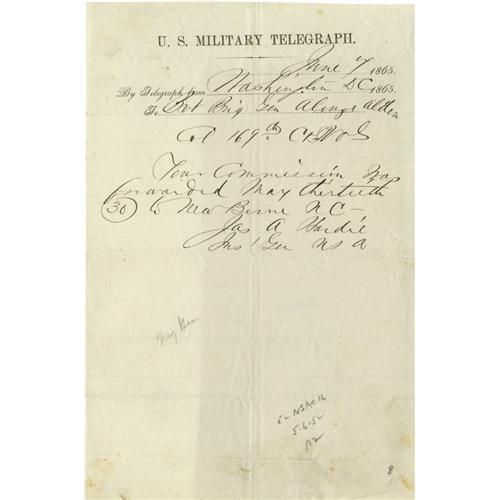 U. S. MILITARY TELEGRAPH.
June 7 1865.
By Telegraph from Washington DC 1865.
To Bvt Brig Gen Alonzo Alden
Col 169th
Your Commission was
forwarded May thirtieth
(30) to New Berne N C -
Jas A Hardie
Ins Gen U S A
5-6-52
8